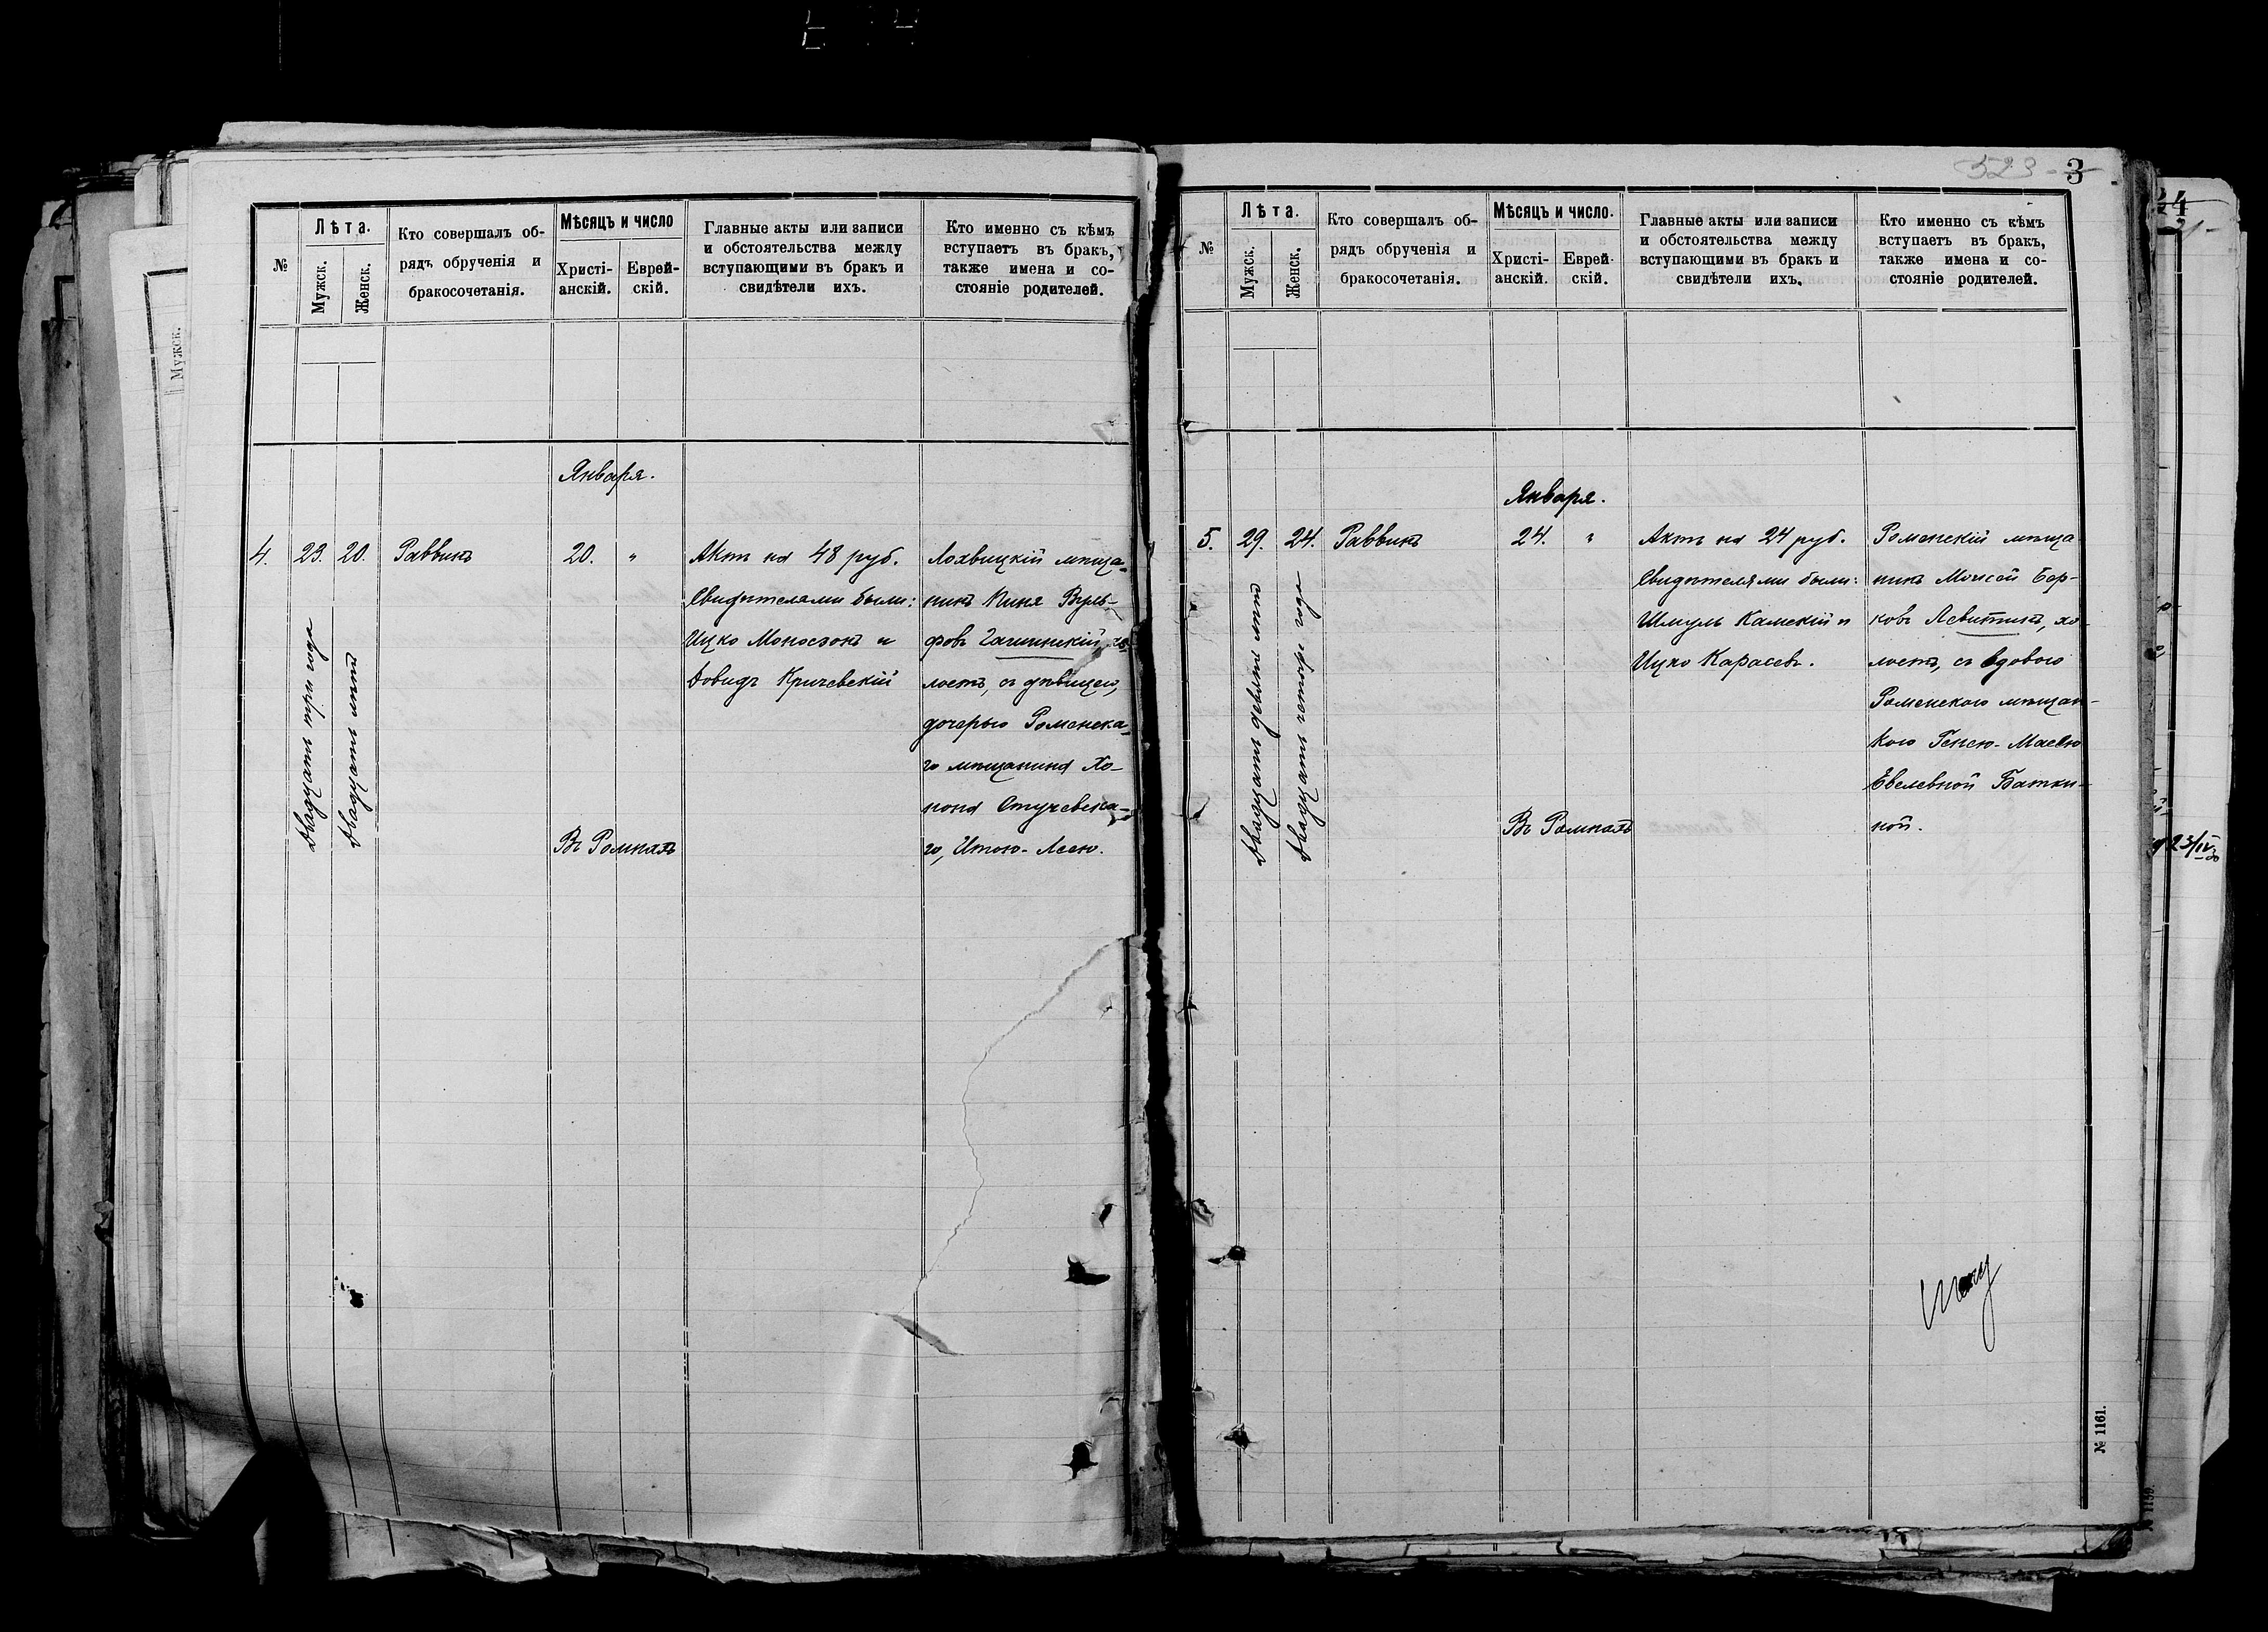 №
Лѣта.
Мужск.
Женск.
Кто совершалъ об-
рядъ обрученія и
бракосочетанія.
Мѣсяцъ и число
Христі-
анскій.
Еврей-
скій.
Главные акты или записи
и обстоятельства между
вступающими въ бракъ и
свидѣтели ихъ.
Кто именно съ кѣмъ
вступаетъ въ бракъ,
также имена и со-
стояніе родителей.
Января.
4.
23.
20.
Двадцать три года
Двадцать лѣтъ
Раввинъ
20.
"
Въ Ромнахъ
Актъ на 48 руб.
Свидѣтелями были:
Ицко Моносзонъ и
Довидъ Кричевскій
Лохвицкій мѣща-
нинъ Пиня Вуль-
фовъ хо-
лостъ, съ дѣвицею,
дочерью Роменска-
го мѣщанина Хо-
нона
го, Итою-Леею.
523
3
№
Лѣта.
Мужск.
Женск.
Кто совершалъ об-
рядъ обрученія и
бракосочетанія.
Мѣсяцъ и число.
Христі-
анскій.
Еврей-
скій.
Главные акты или записи
и обстоятельства между
вступающими въ бракъ и
свидѣтели ихъ.
Кто именно съ кѣмъ
вступаетъ въ бракъ,
также имена и со-
стояніе родителей.
Января.
5.
29.
24.
Двадцать девять лѣтъ
Двадцать четыре года
Раввинъ
24.
"
Въ Ромнахъ
Актъ на 24 руб.
Свидѣтелями были:
Шмуль Каменскій и
Ицко Карасевъ.
Роменскій мѣща
нинъ Моисей Бер-
ковъ Левитинъ, хо-
лостъ, съ вдовою
Роменскою мѣщан-
кою Генею-Масею
Евелевной Батки-
ной.
№ 1161.
Мужск.
№ 1159.